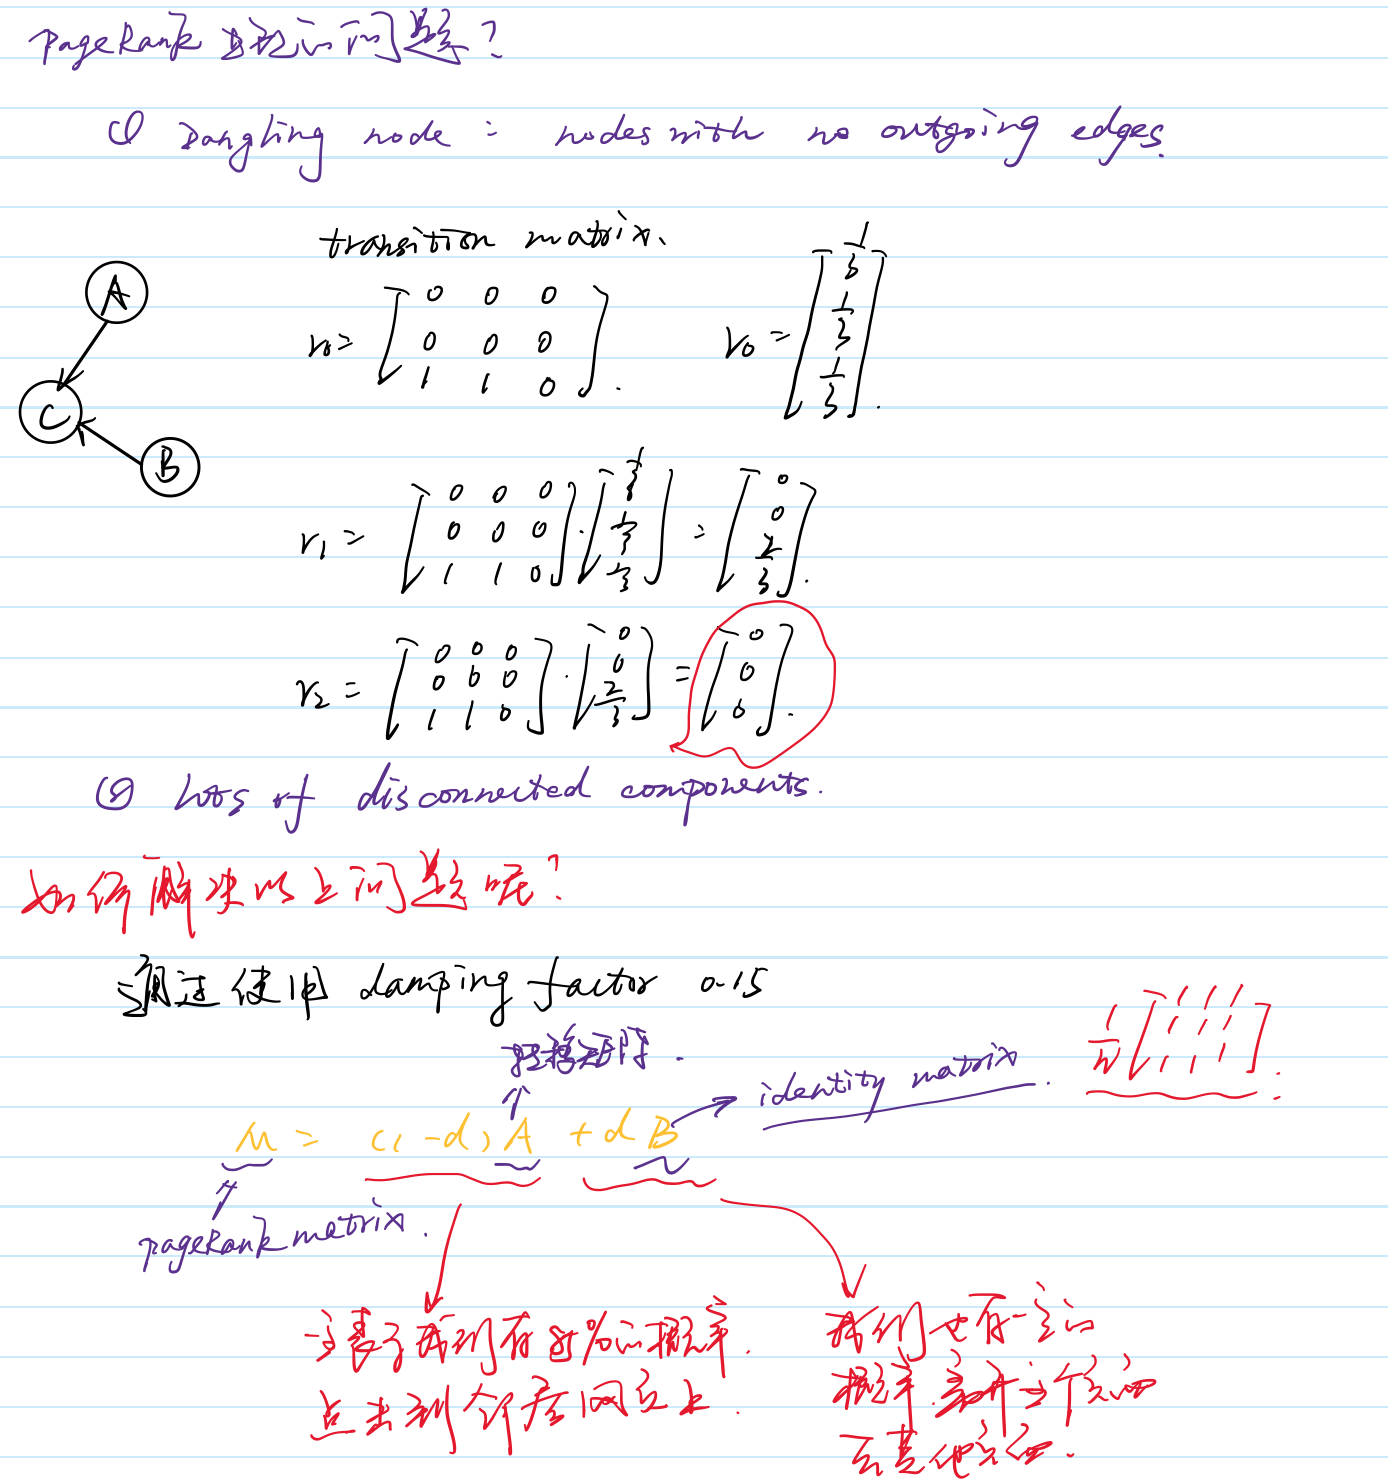 PageRank 出现的问题?
① Dangling node : nodes with no outgoing edges.
transition matrix.
A
C
B
r0 = [0 0 0; 0 0 0; 1 1 0].
r0 = [1/3; 1/3; 1/3].
r1 = [0 0 0; 0 0 0; 1 1 0] · [1/3; 1/3; 1/3] = [0; 0; 2/3].
r2 = [0 0 0; 0 0 0; 1 1 0] · [0; 0; 2/3] = [0; 0; 0].
② lots of disconnected components.
如何解决以上问题呢?
通过使用 damping factor 0.15
转移矩阵.
identity matrix.
1/n [1 1 1; 1 1 1; 1 1 1].
M = (1-d) A + d B
pageRank matrix.
这表示我们有85%的概率.
点击到邻居网页上.
我们也有一定的
概率.离开这个页面
去其他页面.